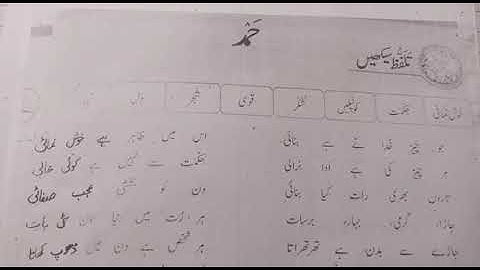 حمد
تلفظ سیکھیں
خوش نمائی حکمت کونپلیں قوی شجر
جو چیز خدا نے ہے بنائی اس میں ظاہر ہے خوش نمائی
ہر چیز کی ہے ادا نرالی حکمت سے نہیں ہے کوئی خالی
تاروں بھری رات کیا بنائی دن کو بخشی عجب صفائی
جاڑا، گرمی، بہار، برسات ہر رُت میں نیا سماں نئی بات
جاڑے سے بدن ہے تھرتھراتا ہر شخص ہے دن میں دھوپ کھاتا